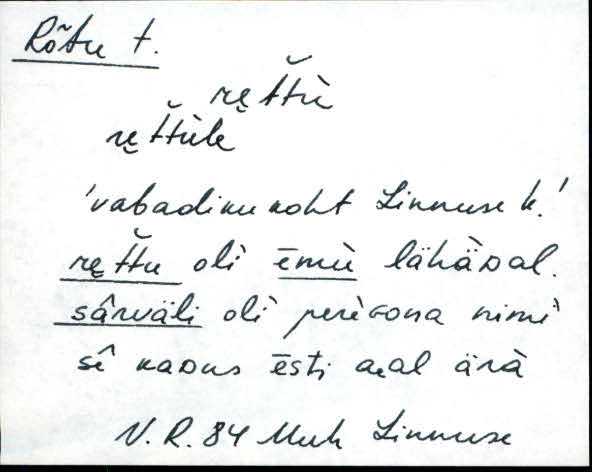 Rõtu t.
rę̮t̆t̆ù
rę̮t̆t̆ùle
'vabadiku koht Linnuse k.'
rę̮t̆t̆u olì ēmù lähàᴅal.
sârväli olì perèɢona nimì
sê kaᴅus ēsti aeal ärà
V.R. 84 Muh Linnuse